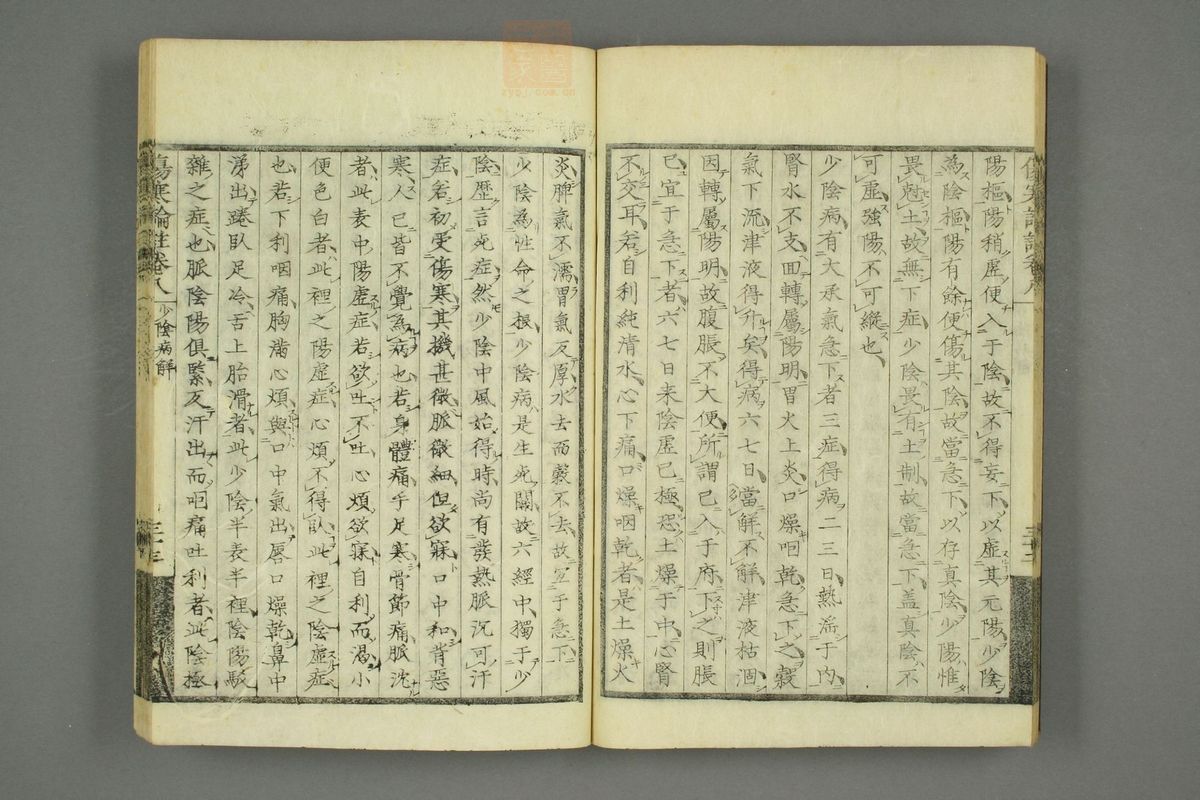 陽樞陽稍虛便入于陰故不得妄下以虛其元陽少陰
為陰樞陽有餘便傷其陰故當急下以存真陰少陽惟
畏尅土故無下症少陰畏有土制故當急下蓋真陰不
可虛強陽不可縱也
少陰病有大承氣急下者三症得病二三日熱淫于內
腎水不支回轉屬陽明胃火上炎口燥咽乾急下之穀
氣下流津液得升矣得病六七日當解不解津液枯涸
因轉屬陽明故腹脹不大便所謂已入于府下之則脹
已宜于急下者六七日来陰虛已極恐土燥于中心腎
不交耳若自利純清水心下痛口燥咽乾者是土燥火
炎脾氣不濡胃氣反厚水去而穀不去故宜于急下
少陰為性命之根少陰病是生死關故六經中獨于少
陰歷言死症然少陰中風始得時尚有發熱脈沉可汗
症若初受傷寒其機甚微脈微細但欲寐口中和背惡
寒人已皆不覺為病也若身體痛手足寒骨節痛脈沈
者此表中陽虛症若欲吐不吐心煩欲寐自利而渴小
便色白者此裡之陽虛症心煩不得臥此裡之陰虛症
也若下利咽痛胸滿心煩與口中氣出唇口燥乾鼻中
涕出踡臥足冷舌上胎滑者此少陰半表半裡陰陽駁
雜之症也脈陰陽俱緊反汗出而咽痛吐利者此陰極
傷寒論註卷八 少陰病解 三十三